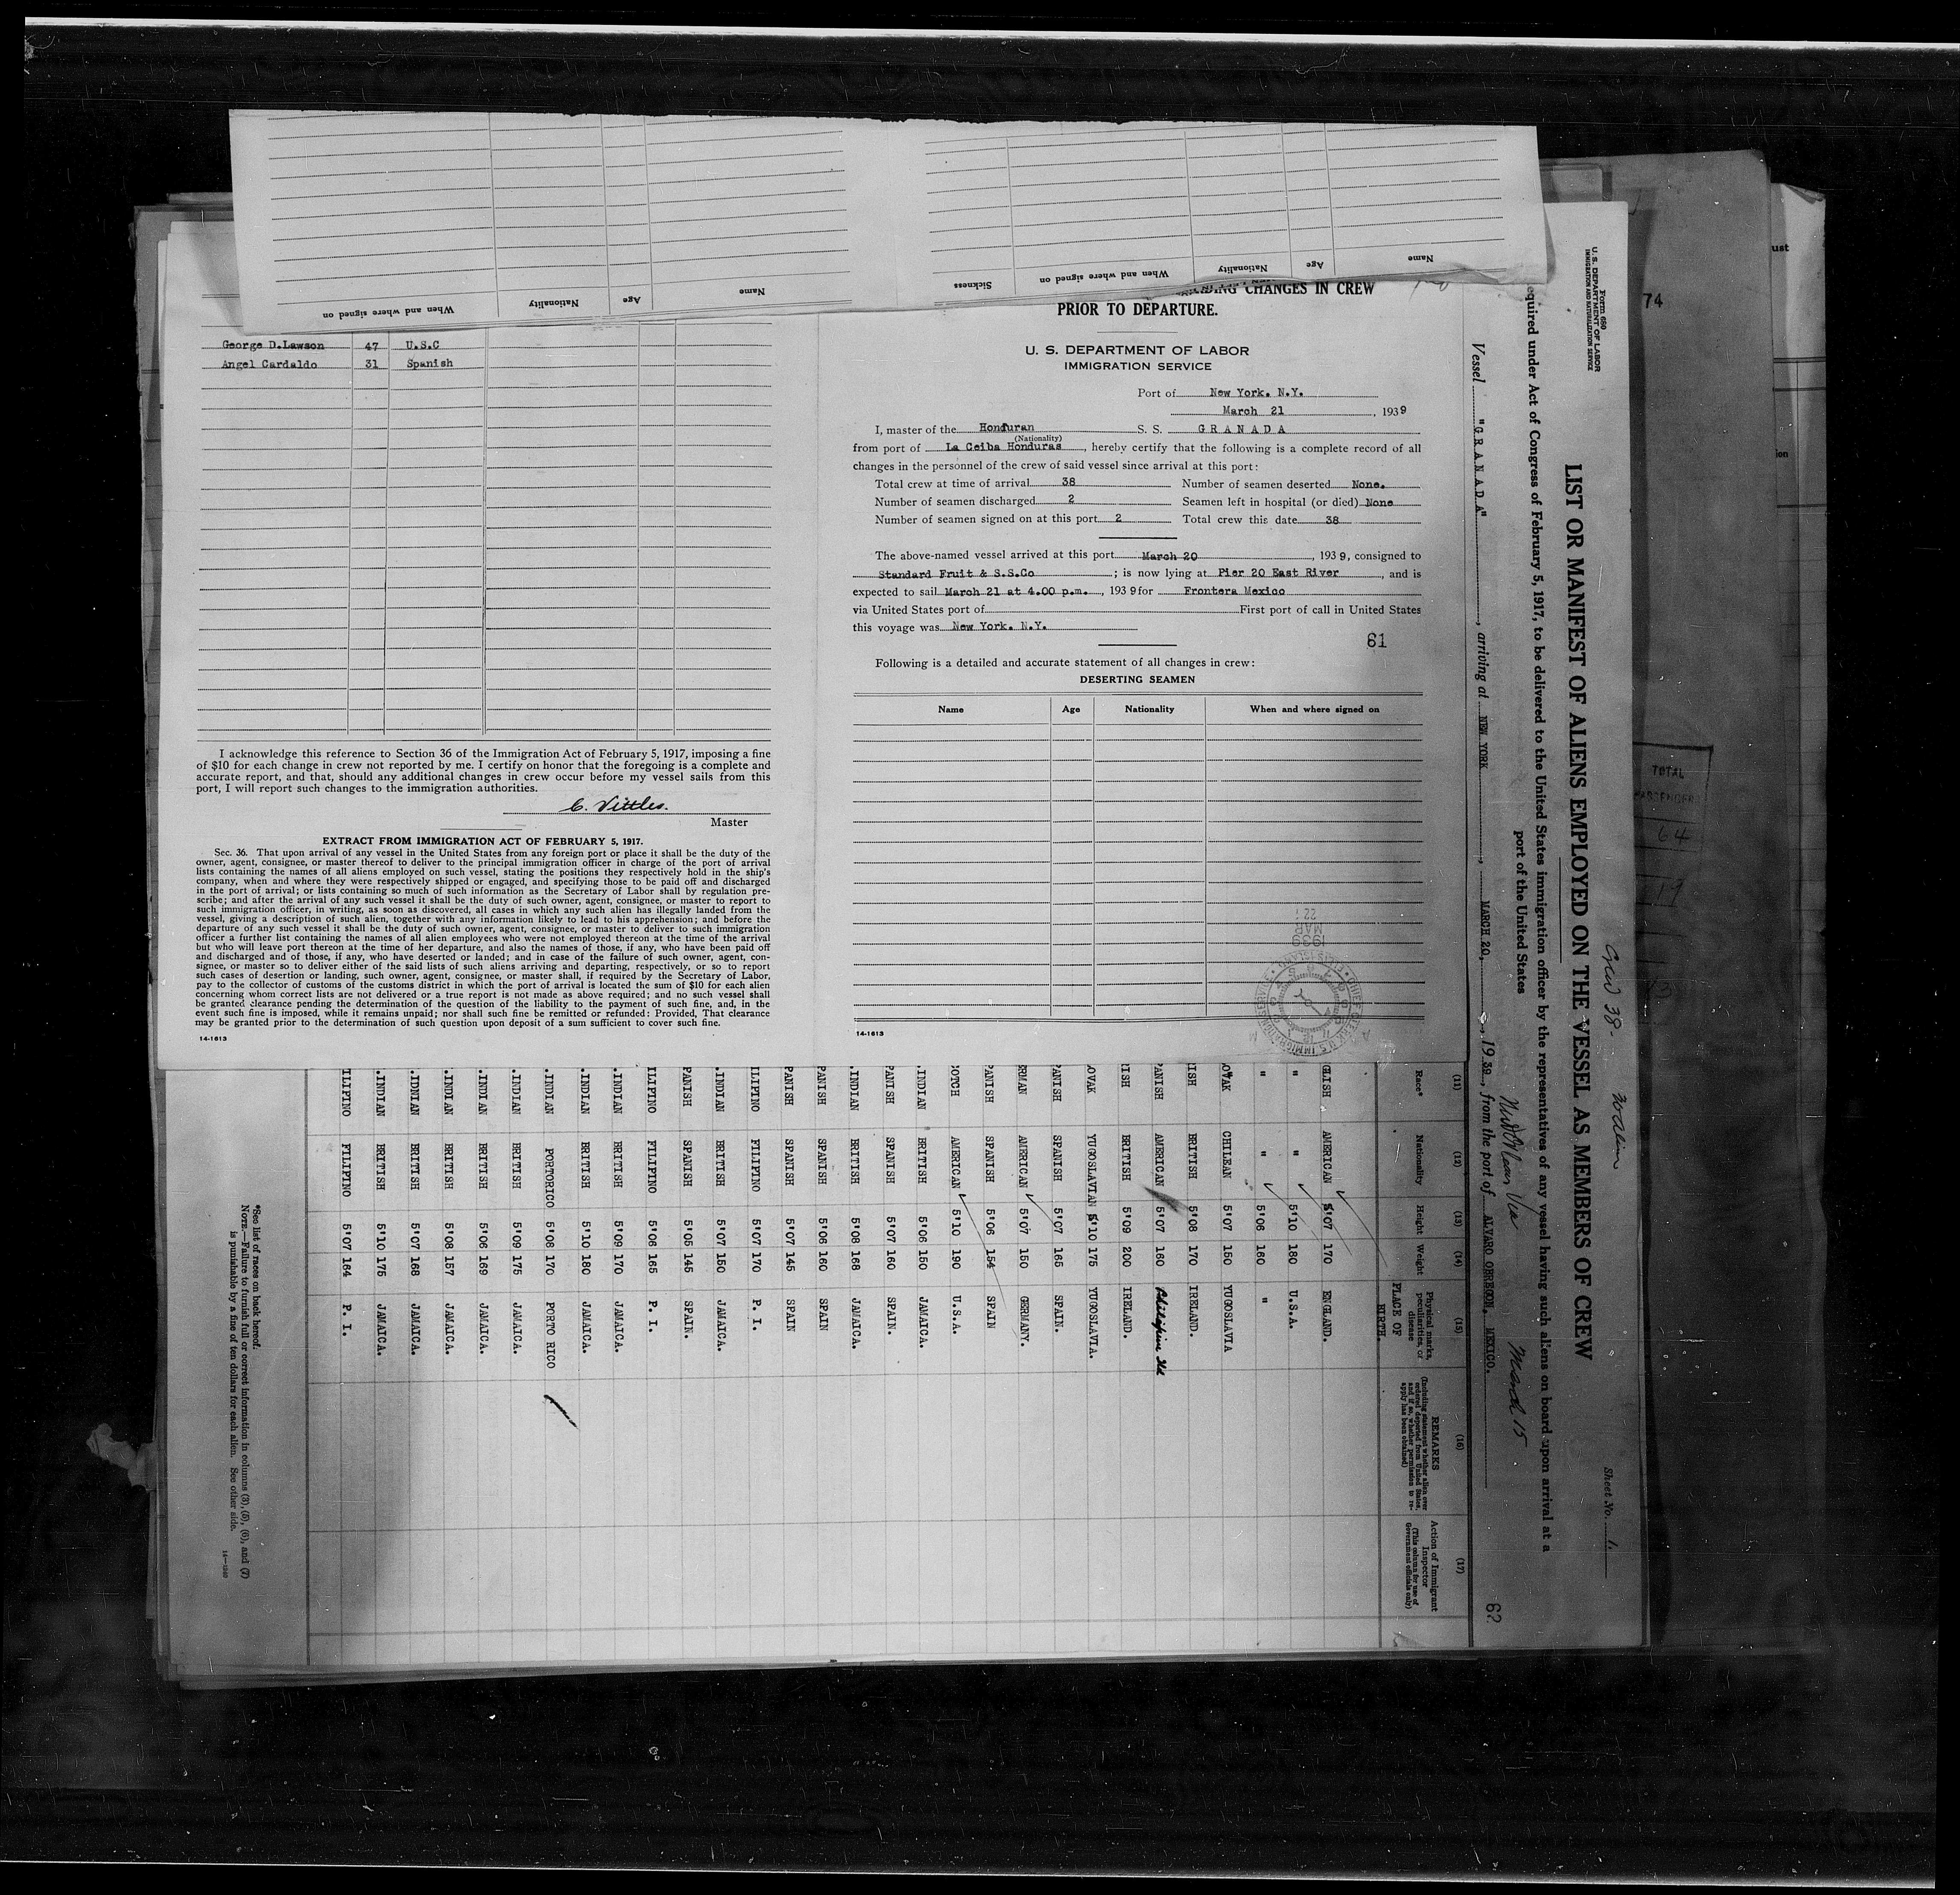 Name Age Nationality When and where signed on
Name Age Nationality When and where signed on Sickness
George D.Lawson 47 U.S.C
Angel Cardaldo 31 Spanish
I acknowledge this reference to Section 36 of the Immigration Act of February 5, 1917, imposing a fine
of $10 for each change in crew not reported by me. I certify on honor that the foregoing is a complete and
accurate report, and that, should any additional changes in crew occur before my vessel sails from this
port, I will report such changes to the immigration authorities.
C. Vittles.
Master
EXTRACT FROM IMMIGRATION ACT OF FEBRUARY 5, 1917.
Sec. 36. That upon arrival of any vessel in the United States from any foreign port or place it shall be the duty of the
owner, agent, consignee, or master thereof to deliver to the principal immigration officer in charge of the port of arrival
lists containing the names of all aliens employed on such vessel, stating the positions they respectively hold in the ship's
company, when and where they were respectively shipped or engaged, and specifying those to be paid off and discharged
in the port of arrival; or lists containing so much of such information as the Secretary of Labor shall by regulation pre-
scribe; and after the arrival of any such vessel it shall be the duty of such owner, agent, consignee, or master to report to
such immigration officer, in writing, as soon as discovered, all cases in which any such alien has illegally landed from the
vessel, giving a description of such alien, together with any information likely to lead to his apprehension; and before the
departure of any such vessel it shall be the duty of such owner, agent, consignee, or master to deliver to such immigration
officer a further list containing the names of all alien employees who were not employed thereon at the time of the arrival
but who will leave port thereon at the time of her departure, and also the names of those, if any, who have been paid off
and discharged and of those, if any, who have deserted or landed; and in case of the failure of such owner, agent, con-
signee, or master so to deliver either of the said lists of such aliens arriving and departing, respectively, or so to report
such cases of desertion or landing, such owner, agent, consignee, or master shall, if required by the Secretary of Labor,
pay to the collector of customs of the customs district in which the port of arrival is located the sum of $10 for each alien
concerning whom correct lists are not delivered or a true report is not made as above required; and no such vessel shall
be granted clearance pending the determination of the question of the liability to the payment of such fine, and, in the
event such fine is imposed, while it remains unpaid; nor shall such fine be remitted or refunded: Provided, That clearance
may be granted prior to the determination of such question upon deposit of a sum sufficient to cover such fine.
14-1613
CHANGES IN CREW
PRIOR TO DEPARTURE.
U. S. DEPARTMENT OF LABOR
IMMIGRATION SERVICE
Port of New York. N.Y.
March 21, 1939
I, master of the Honduran S. S. GRANADA
(Nationality)
from port of La Ceiba Honduras, hereby certify that the following is a complete record of all
changes in the personnel of the crew of said vessel since arrival at this port:
Total crew at time of arrival 38 Number of seamen deserted None.
Number of seamen discharged 2 Seamen left in hospital (or died) None
Number of seamen signed on at this port 2 Total crew this date 38
The above-named vessel arrived at this port March 20, 1939, consigned to
Standard Fruit & S.S.Co; is now lying at Pier 20 East River, and is
expected to sail March 21 at 4.00 p.m., 1939 for Frontera Mexico
via United States port of First port of call in United States
this voyage was New York. N.Y.
61
Following is a detailed and accurate statement of all changes in crew:
DESERTING SEAMEN
Name Age Nationality When and where signed on
1939
MAR
22
14-1613
Form 680
U. S. DEPARTMENT OF LABOR
IMMIGRATION AND NATURALIZATION SERVICE
Crew 38-
Sheet No. 1.
LIST OR MANIFEST OF ALIENS EMPLOYED ON THE VESSEL AS MEMBERS OF CREW
equired under Act of Congress of February 5, 1917, to be delivered to the United States immigration officer by the representatives of any vessel having such aliens on board upon arrival at a
port of the United States
Vessel "GRANADA", arriving at NEW YORK, MARCH 20, 1939, from the port of ALVARO OBREGON. MEXICO.
March 15
62
(11) (12) (13) (14) (15) (16) (17)
Race* Nationality Height Weight Physical marks, peculiarities, or disease REMARKS (Including statement whether alien ever ordered deported from United States, and if so, whether permission to reapply has been obtained) Action of Immigrant Inspector (This column for use of Government officials only)
PLACE OF BIRTH.
GLISH AMERICAN 5'07 170 ENGLAND.
" " 5'10 180 U.S.A.
" " 5'06 160 "
OVAK CHILEAN 5'07 150 YUGOSLAVIA
ISH BRITISH 5'08 170 IRELAND.
PANISH AMERICAN 5'07 160 Philippine Isl
ISH BRITISH 5'09 200 IRELAND.
OVAK YUGOSLAVIAN 5'10 175 YUGOSLAVIA.
PANISH SPANISH 5'07 165 SPAIN.
RMAN AMERICAN 5'07 150 GERMANY.
PANISH SPANISH 5'06 154 SPAIN
OTCH AMERICAN 5'10 190 U.S.A.
.INDIAN BRITISH 5'06 150 JAMAICA.
PANISH SPANISH 5'07 160 SPAIN.
.INDIAN BRITISH 5'08 168 JAMAICA.
PANISH SPANISH 5'06 160 SPAIN
PANISH SPANISH 5'07 145 SPAIN
ILIPINO FILIPINO 5'07 170 P. I.
.INDIAN BRITISH 5'07 150 JAMAICA.
PANISH SPANISH 5'05 145 SPAIN.
ILIPINO FILIPINO 5'06 165 P. I.
.INDIAN BRITISH 5'09 170 JAMAICA.
.INDIAN BRITISH 5'10 180 JAMAICA.
.INDIAN PORTORICO 5'08 170 PORTO RICO
.INDIAN BRITISH 5'09 175 JAMAICA.
.INDIAN BRITISH 5'06 169 JAMAICA.
.INDIAN BRITISH 5'08 157 JAMAICA.
.IDNIAN BRITISH 5'07 168 JAMAICA.
.INDIAN BRITISH 5'10 175 JAMAICA.
ILIPINO FILIPINO 5'07 184 P. I.
*See list of races on back hereof.
NOTE.—Failure to furnish full or correct information in columns (3), (5), (6), and (7)
is punishable by a fine of ten dollars for each alien. See other side.
74
TOTAL
PASSENGERS
64